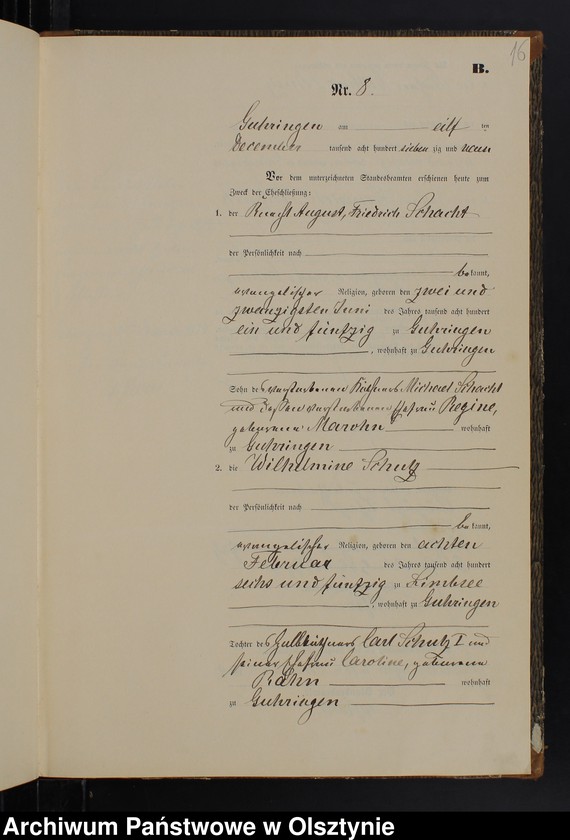 16
B.
Nr. 8.
Guhringen am eilf ten
December tausend acht hundert sieben zig und neun
Vor dem unterzeichneten Standesbeamten erschienen heute zum
Zweck der Eheschließung:
1. der Knecht August, Friedrich Schacht
der Persönlichkeit nach
be kannt,
evangelischer Religion, geboren den zwei und
zwanzigsten Juni des Jahres tausend acht hundert
ein und fünfzig zu Guhringen
, wohnhaft zu Guhringen
Sohn des verstorbenen Käthners Michael Schacht
und dessen verstorbenen Ehefrau Regine,
geborenen Marohn wohnhaft
zu Guhringen
2. die Wilhelmine Schulz
der Persönlichkeit nach
be kannt,
evangelischer Religion, geboren den achten
Februar des Jahres tausend acht hundert
sechs und fünfzig zu Limbsee
, wohnhaft zu Guhringen
Tochter des Halbkäthners Carl Schulz I und
seiner Ehefrau Caroline, geborenen
wohnhaft
zu Guhringen
Archiwum Państwowe w Olsztynie